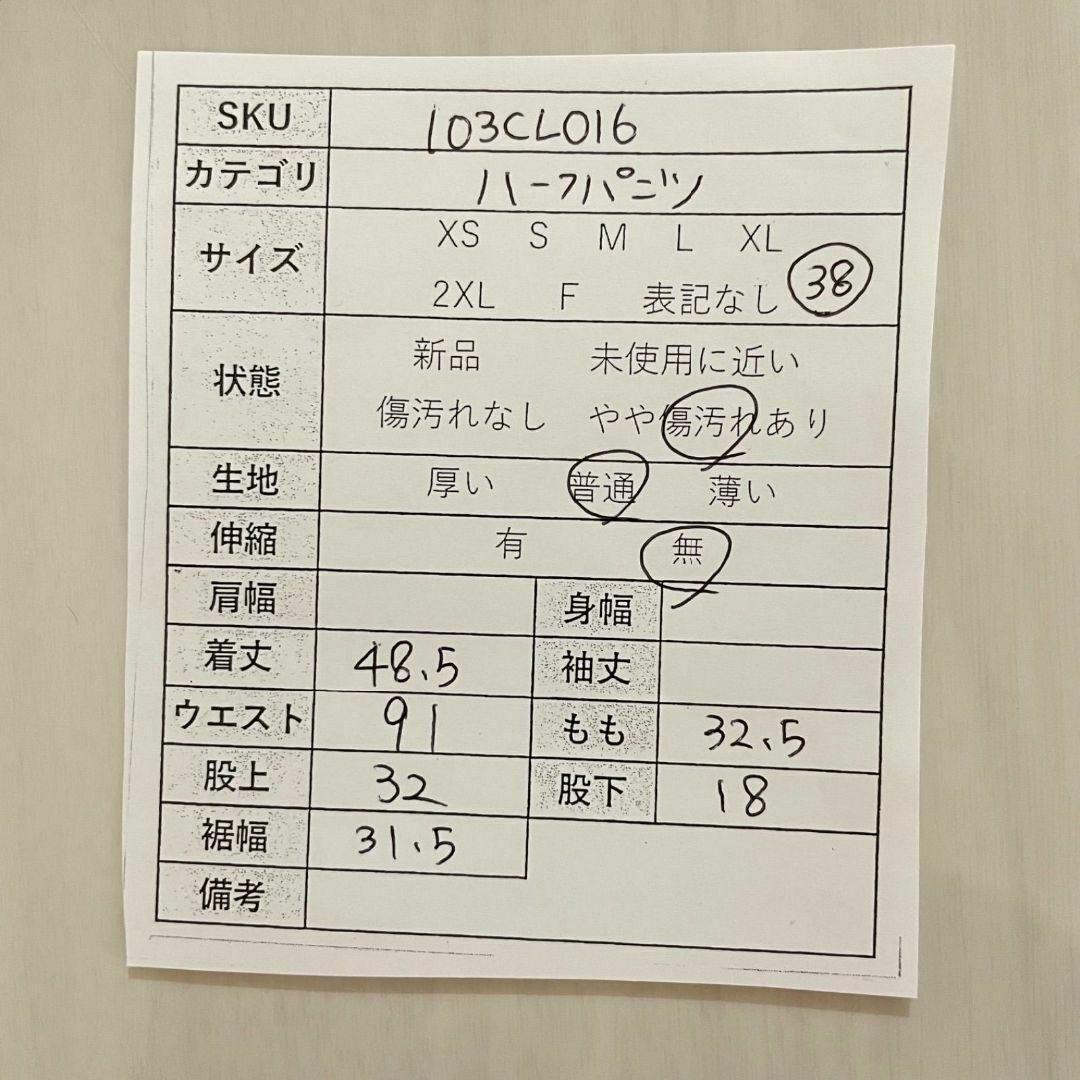 SKU 103CL016
カテゴリ ハーフパンツ
サイズ XS S M L XL
2XL F 表記なし 38
状態 新品 未使用に近い
傷汚れなし やや傷汚れあり
生地 厚い 普通 薄い
伸縮 有 無
肩幅 身幅
着丈 48.5 袖丈
ウエスト 91 もも 32.5
股上 32 股下 18
裾幅 31.5
備考